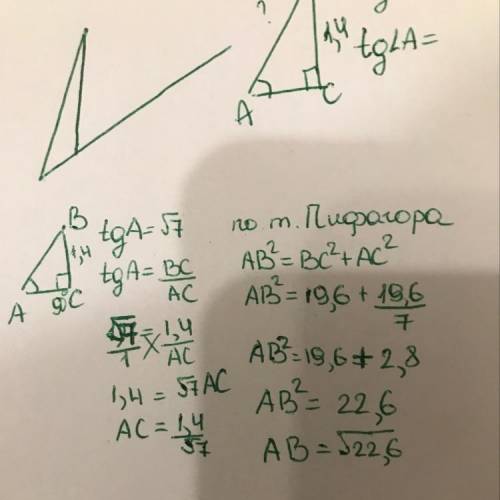 ?
1,4
tg∠A=
A
C
B
1,4
A
90°
C
tgA = √7
tgA = BC/AC
√7/1 = 1,4/AC
1,4 = √7 AC
AC = 1,4/√7
по т. Пифагора
AB² = BC² + AC²
AB² = 19,6 + 19,6/7
AB² = 19,6 + 2,8
AB² = 22,6
AB = √22,6